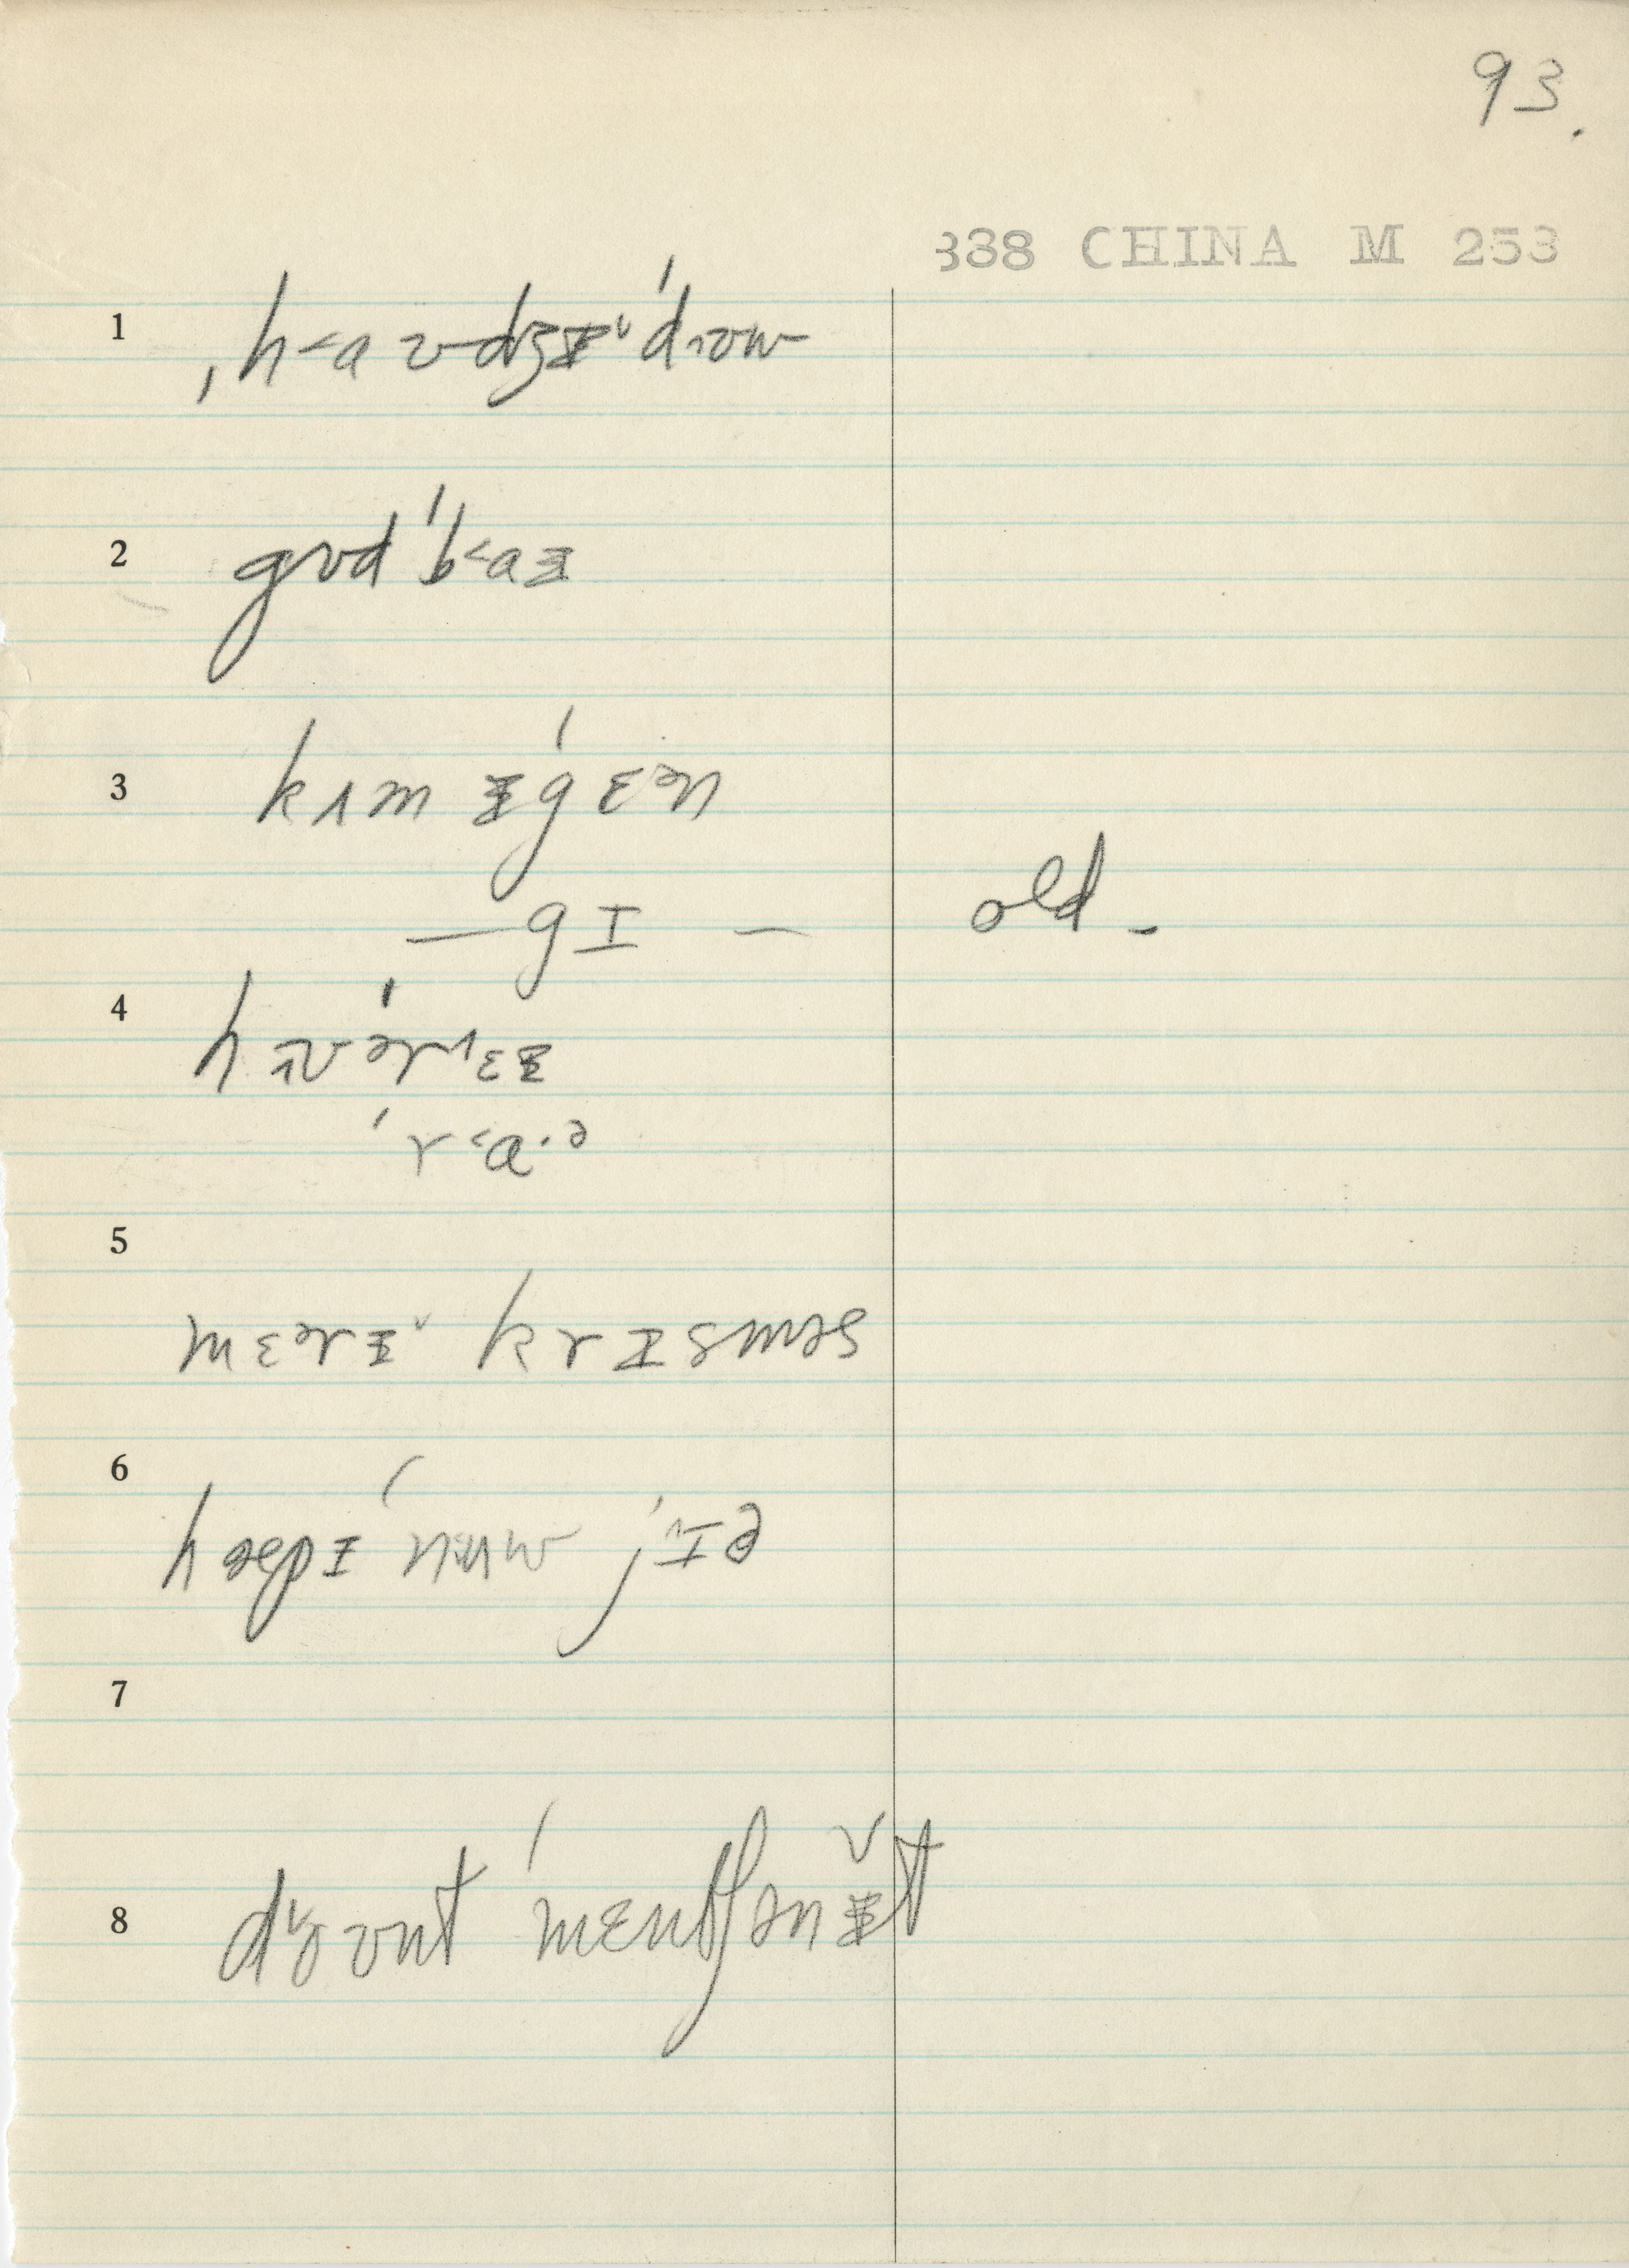 93.
338 CHINA M 253
1 ˌh˂aʊdʒɪ˅ˈdɪʊw
2 gʊdˈb˂aɪ
3 kʌmɪˈgɛən
—gɪ— old-
4 hɪʊˈər˄ɛɪ
ˈr˂ɑ·ə
5
mɛərɪ˅ krɪsməs
6 hæpɪˈnɪʉw jˈɪ˅ə
7
8 do˅ʊntˈmɛntʃənɪ̌t